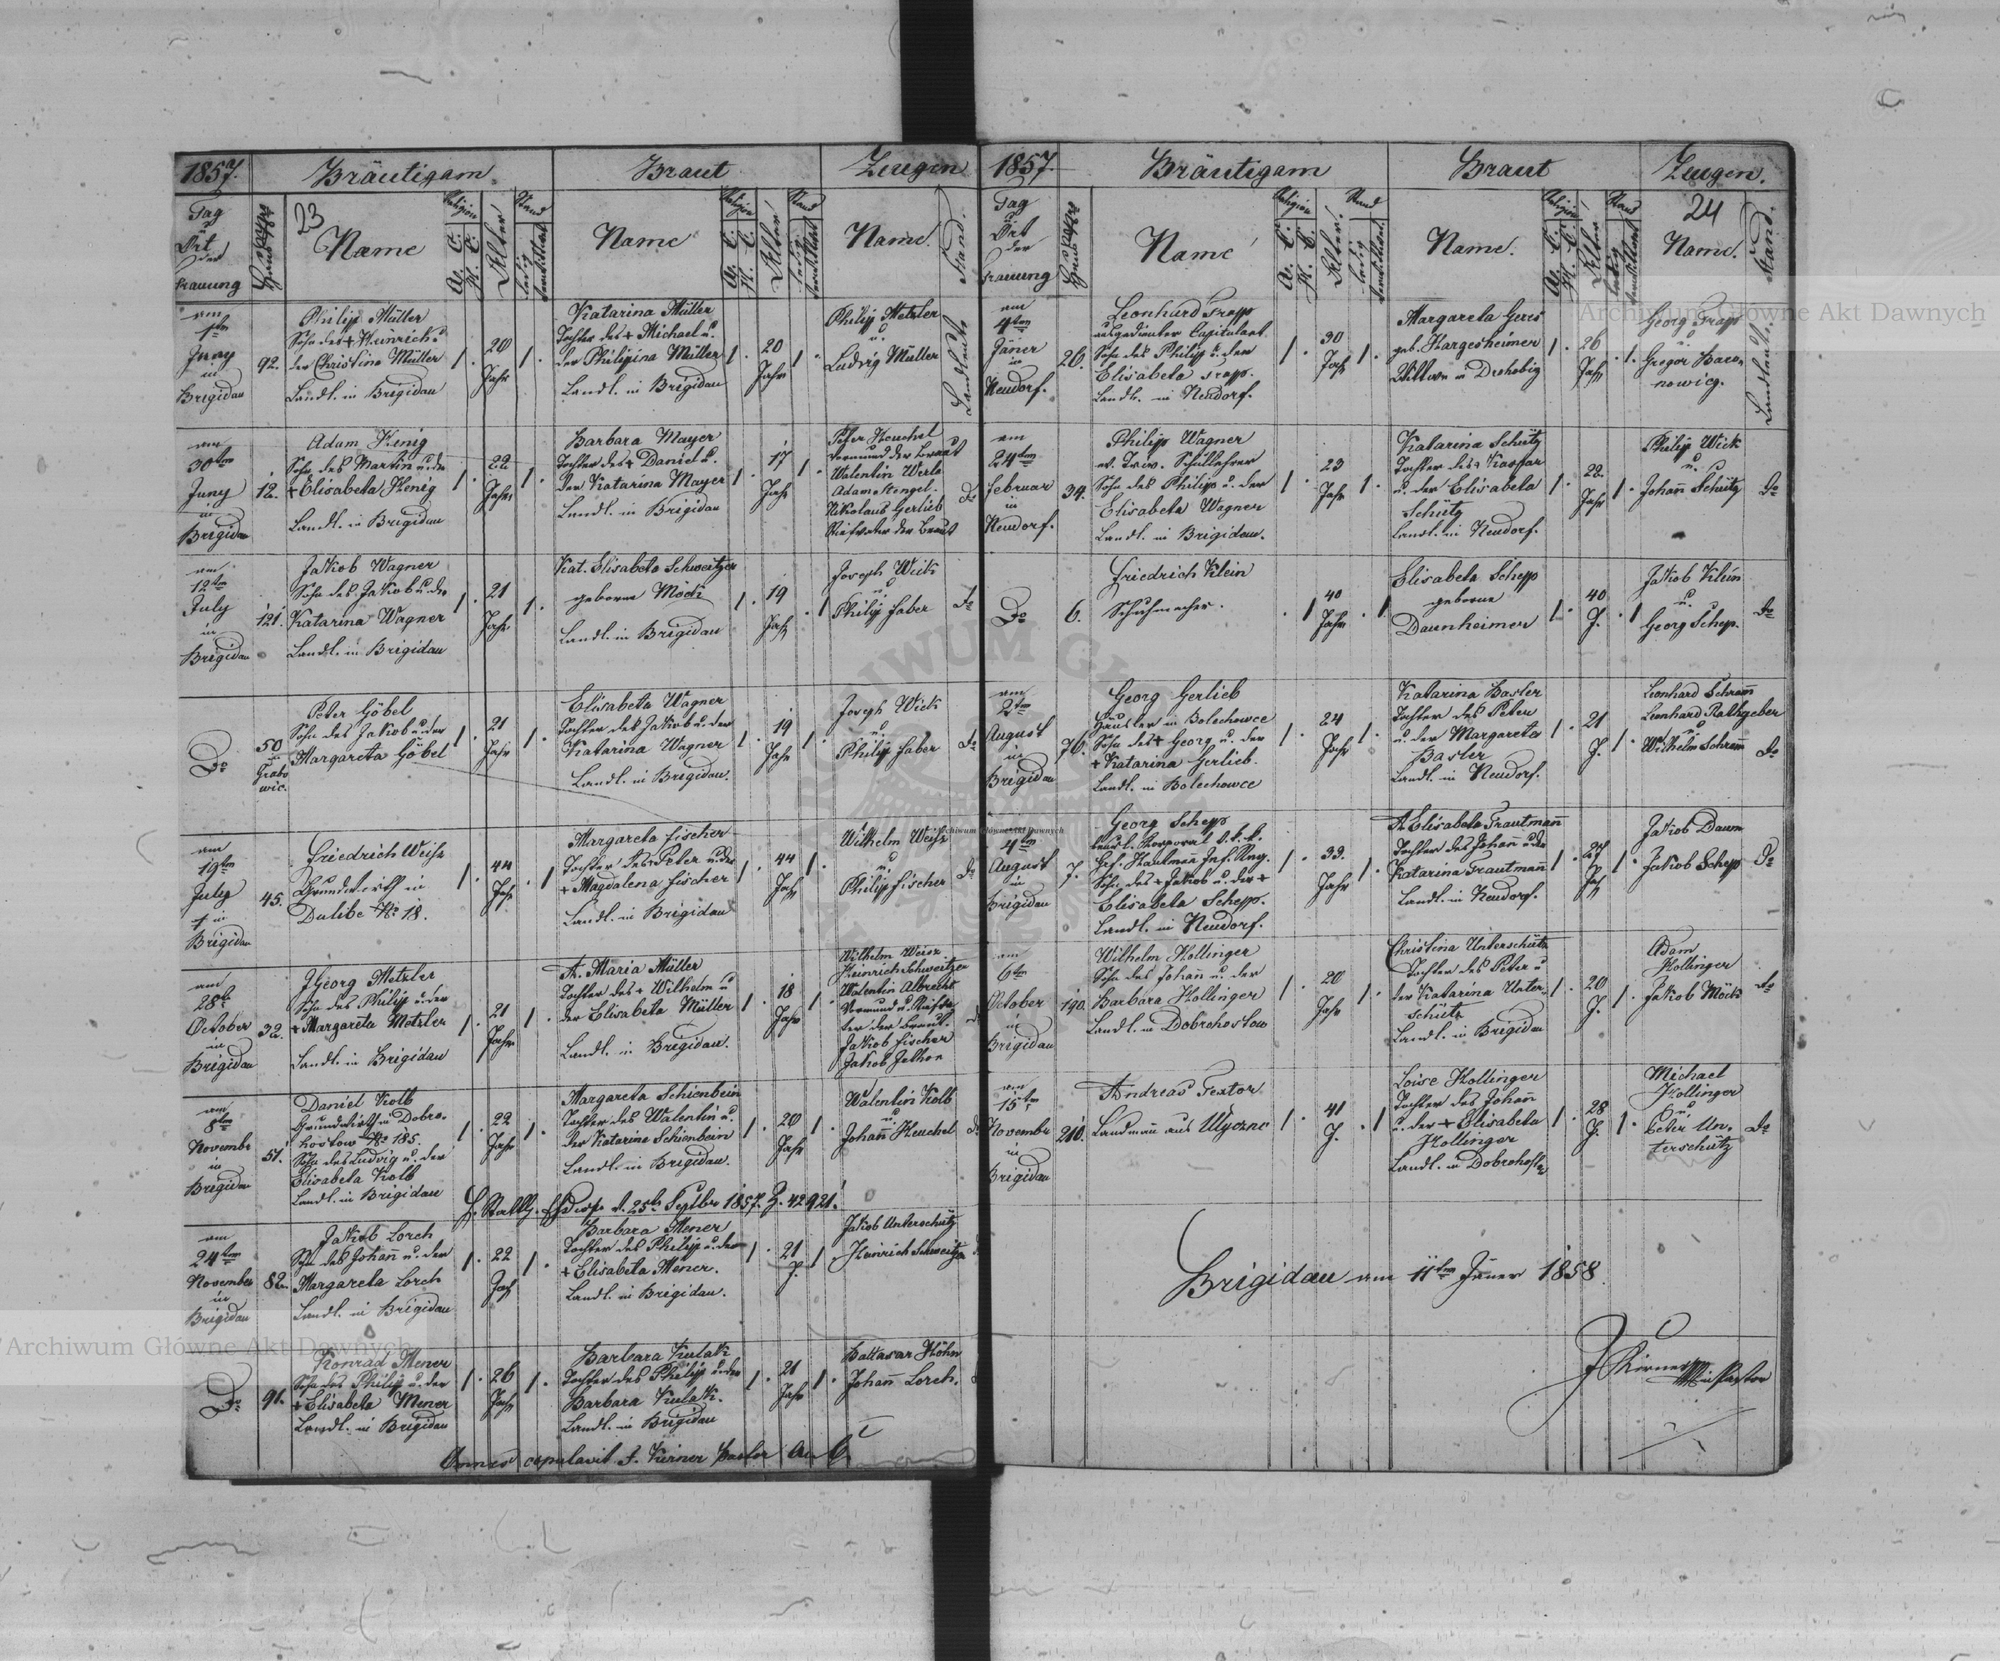 1857.
Bräutigam
Braut
Zeugen
Tag
Ort
der
Trauung
23
Name
Religion
A. C.
H. C.
Alter
Stand
ledig
Name
Religion
A. C.
H. C.
Alter
Stand
ledig
Name.
Stand.
am
1ten
in
Brigidau
92.
Philip Müller
Sohn des + Heinrich u.
der Christina Müller
Landl. in Brigidau
1.
20
Jahr
1.
Katarina Müller
Tochter des + Michael u.
der Philipina Müller
Landl. in Brigidau
1.
20
Jahr
1.
Philip Metzler
u.
Ludvig Müller
Landleute
am
30ten
Juny
in
Brigidau
12.
Adam Kenig
Sohn des Martin u. der
+ Elisabeta Kenig
Landl. in Brigidau
1.
22
Jahr
1.
Barbara Mayer
Tochter des + Daniel u.
der Katarina Mayer
Landl. in Brigidau
1.
17
Jahr
1.
Peter Heuchel
Vormund der Braut
Walentin Werle
Adam Stengel.
Nikolaus Gerlieb
der Braut
do
am
12ten
July
in
Brigidau
121.
Jakob Wagner
Sohn des Jakob u. der
Katarina Wagner
Landl. in Brigidau
1.
21
Jahr
1.
Kat. Elisabeta Schweitzer
geborne Möck
Landl. in Brigidau
1.
19
Jahr
1
Joseph Wick
u.
Philip Faber
do
Do
50
Grabo
wic.
Peter Göbel
Sohn des Jakob u. der
Margareta Göbel
1.
21
Jahr
1.
Elisabeta Wagner
Tochter des Jakob u. der
Katarina Wagner
Landl. in Brigidau.
1.
19
Jahr
1.
Joseph Wick
u.
Philip Faber
do
am
19ten
July
in
Brigidau
45.
Friedrich Weisz
Grundwirth in
Dulibe No 18.
1.
44
Jahr
1
Margareta Fischer
Tochter des Peter u. der
+ Magdalena Fischer
Landl. in Brigidau
1.
44
Jahr
1.
Wilhelm Weisz
u.
Philip Fischer
do
am
28t
October
in
Brigidau
32.
JGeorg Metzler
Sohn des Philip u. der
+ Margareta Metzler
Landl. in Brigidau
1.
21
Jahr
1.
A. Maria Müller
Tochter des + Wilhelm u
der Elisabeta Müller
Landl. in Brigidau.
1.
18
Jahr
1.
Wilhelm Weisz
Heinrich Schweitzer
Walentin Albrecht
ter der Braut.
Jakob Fischer
am
8ten
Novembr
in
Brigidau
51.
Daniel Kolb
Grundwirth in Dobro-
hostow No 185.
Sohn des Ludvig u. der
Elisabeta Kolb
Landl. in Brigidau
1.
22
Jahr
1.
Margareta Schienbein
Tochter des Walentin u.
der Katarina Schienbein
Landl. in Brigidau.
1.
20
Jahr
1.
Walentin Kolb
u
Johañ Heuchel
25t Septbr 1857. Z. 42921.
am
24ten
November
in
Brigidau
82.
Jakob Lorch
Sohn des Johañ u. der
Margareta Lorch
Landl. in Brigidau
1.
22
Jahr
1.
Barbara Mener
Tochter des Philip u. der
+ Elisabeta Mener.
Landl. in Brigidau.
1.
21
J.
1
Jakob Unterschütz
Heinrich Schweitzer
Do
91.
Konrad Mener
Sohn des Philip u. der
+ Elisabeta Mener
Landl. in Brigidau
1.
26
Jahr
1.
Barbara Kulak
Tochter des Philip u. der
Barbara Kulak.
Landl. in Brigidau
1.
21
Jahr
1.
Baltasar Höhn
Johañ Lorch.
Omnes copulavit J. Kirner Pastor
1857.
Bräutigam
Braut
Zeugen.
Tag
Ort
der
Trauung
Name
Religion
A. C.
H. C.
Alter.
Stand
ledig
Name.
Religion
A. C.
H. C.
Alter
Stand
ledig
24
Name.
Stand.
am
4ten
Jäner
in
Neudorf.
26.
Leonhard Trapp
ausgedienter Capitulant
Sohn des Philip u. der
Elisabeta Trapp.
Landl. in Neudorf.
1.
30
Jahr
1.
Margareta Geres
geb. Hargesheimer
Wittwe in Drohobig
1.
26
Jahr
1.
Georg Trapp
u
Gregor Bara-
nowicz.
Landleute.
am
24ten
Februar
in
Neudorf.
34.
Philip Wagner
ev. Triv. Schullehrer
Sohn des Philip u. der
Elisabeta Wagner
Landl. in Brigidau.
1.
23
Jahr
1.
Katarina Schütz
Tochter des + Kaspar
u. der Elisabeta
Schütz
Landl. in Neudorf.
1.
22.
Jahr
1.
Philip Wick
u.
Johañ Schütz
do
Do
6.
Friedrich Klein
Schuhmacher.
1
40
Jahr
1
Elisabeta Schepp
geborne
Daunheimer
1.
40
J.
1
Jakob Klein
u.
Georg Schep.
do
am
2ten
August
in
Brigidau
76.
Georg Gerlieb
Häusler in Bolechowce
Sohn des + Georg u. der
+ Katarina Gerlieb.
Landl. in Bolechowce
1.
24
Jahr
1.
Katarina Basler
Tochter des Peter
u. der Margareta
Basler
Landl. in Neudorf.
1.
21
J.
1.
Leonhard Schram̃
Leonhard Rathgeber
u
Wilhelm Schram̃
do
am
4ten
August
in
Brigidau
7.
Georg Schepp
beurl. Korporal d. k. k.
Sohn des + Jakob u. der +
Elisabeta Schepp.
Landl. in Neudorf.
1.
33.
Jahr
1.
A. Elisabeta Trautmañ
Tochter des Johañ u. der
Katarina Trautmañ
Landl. in Neudorf.
1.
27
Jahr
1.
Jakob Daum
Jakob Schepp
do
am
6ten
October
in
Brigidau
190.
Wilhelm Hollinger
Sohn des Johañ u. der
Barbara Hollinger
Landl. in Dobrohostow
1.
20
Jahr
1.
Christina Unterschütz
Tochter des Peter u
der Katarina Unter-
schütz
Landl. in Brigidau
1.
20
J.
1.
Adam
Hollinger
Jakob Möck
do
am
15ten
Novembr
in
Brigidau
210.
Andreas Textor
Landmañ aus Ulyczno
1.
41
J.
1
Loise Hollinger
Tochter des Johañ
u. der + Elisabeta
Hollinger
Landl. in Dobrohostow
1.
28
J.
1.
Michael
Hollinger
u
Peter Un-
terschütz
do
Brigidau am 11ten Jäner 1858.
J Kirner
Pastor
Archiwum Główne Akt Dawnych
Archiwum Główne Akt Dawnych
Archiwum Główne Akt Dawnych